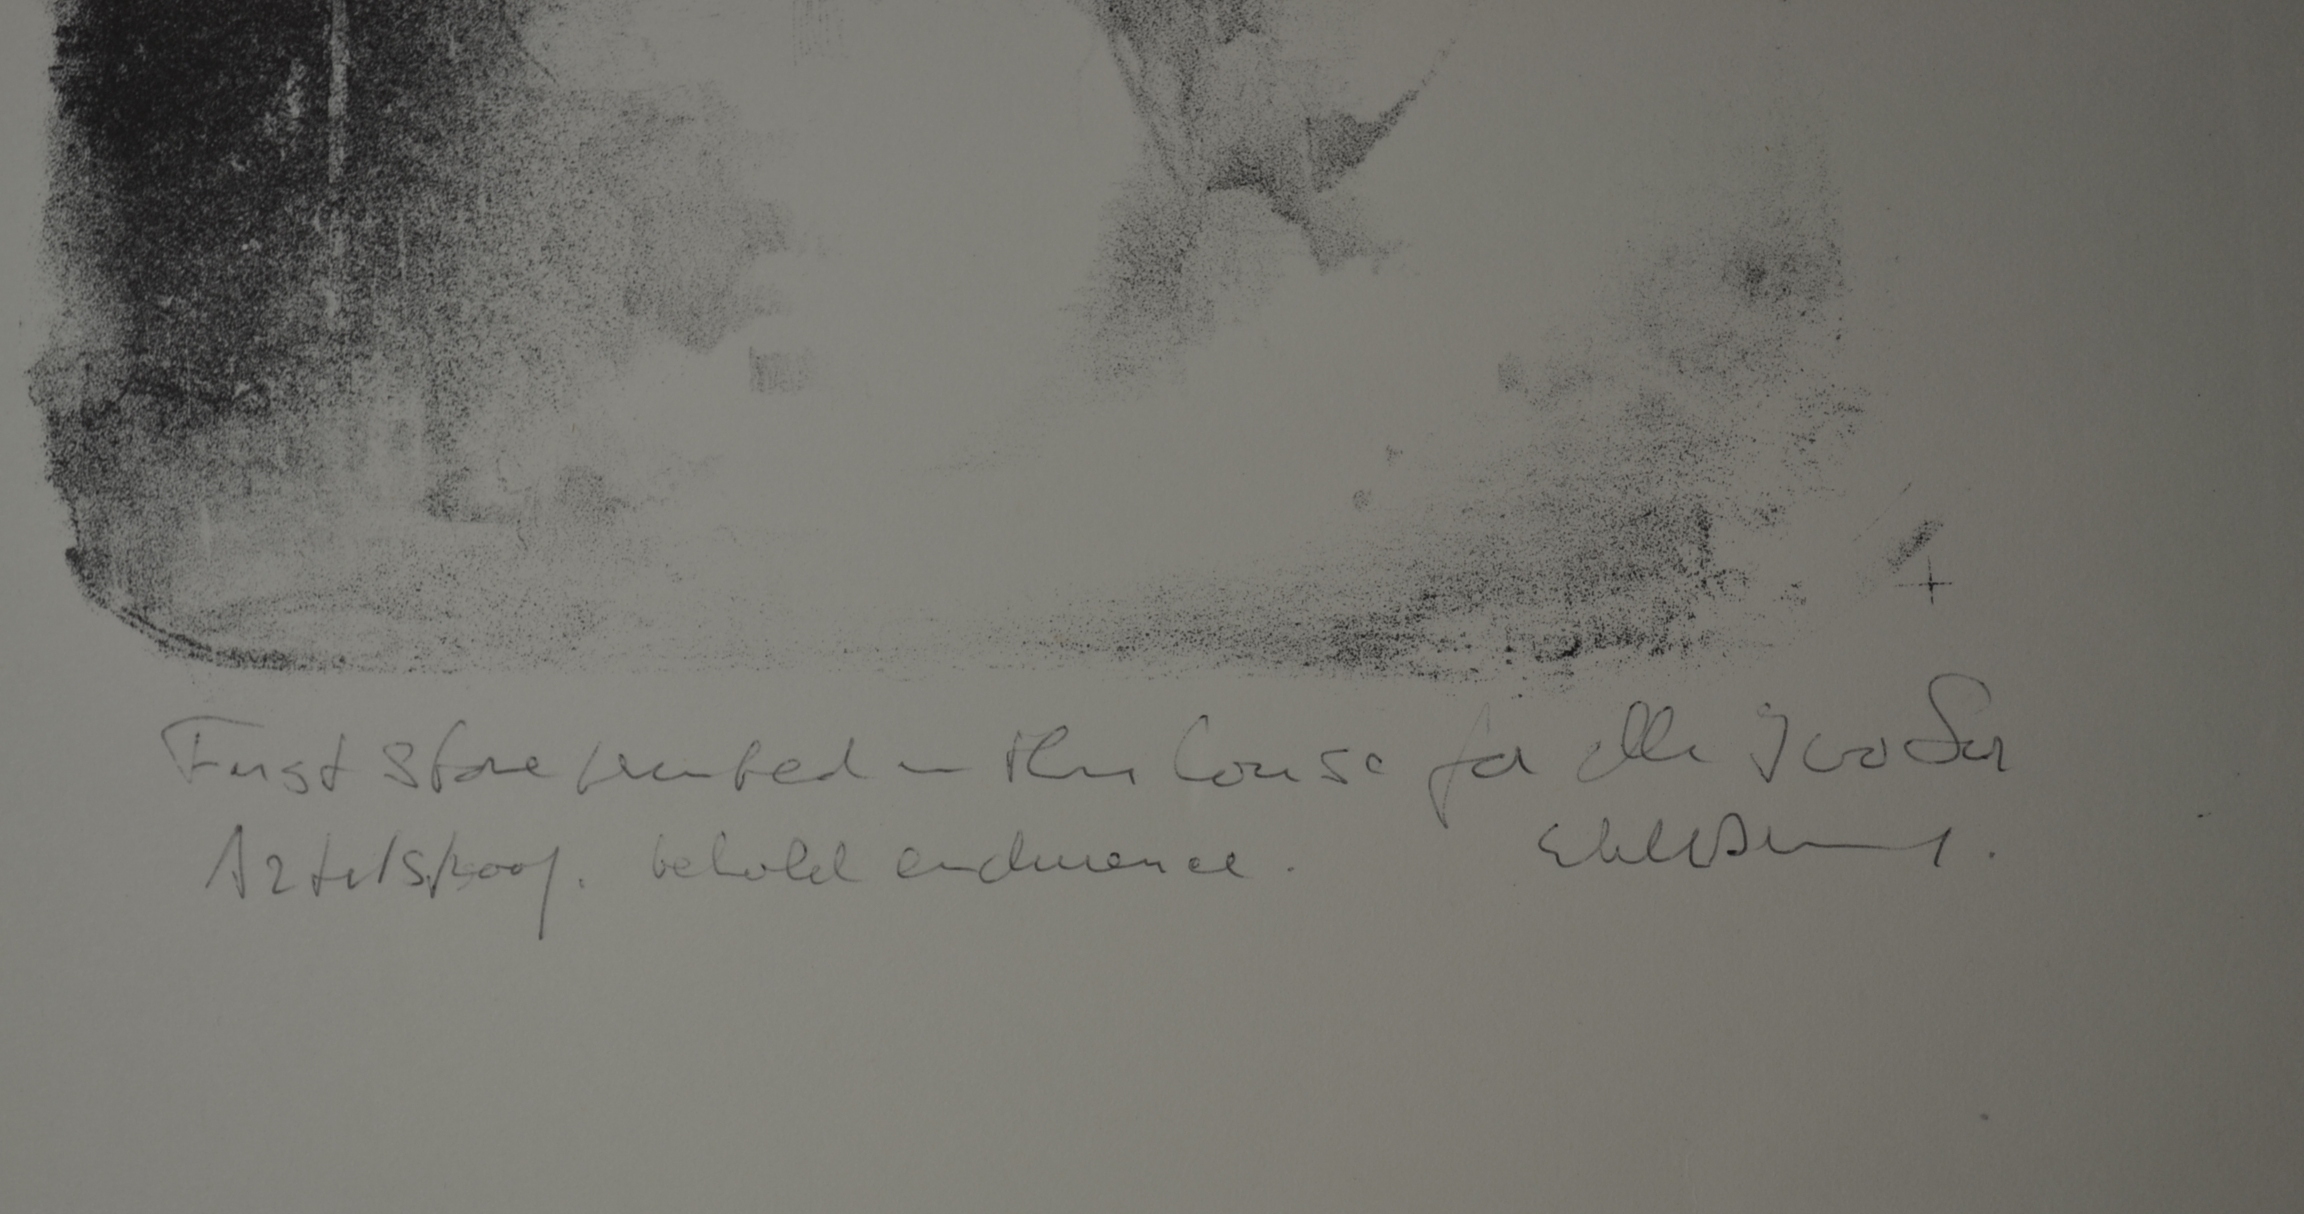 First Stone printed in this house for
Artistsproof. behold endurance.